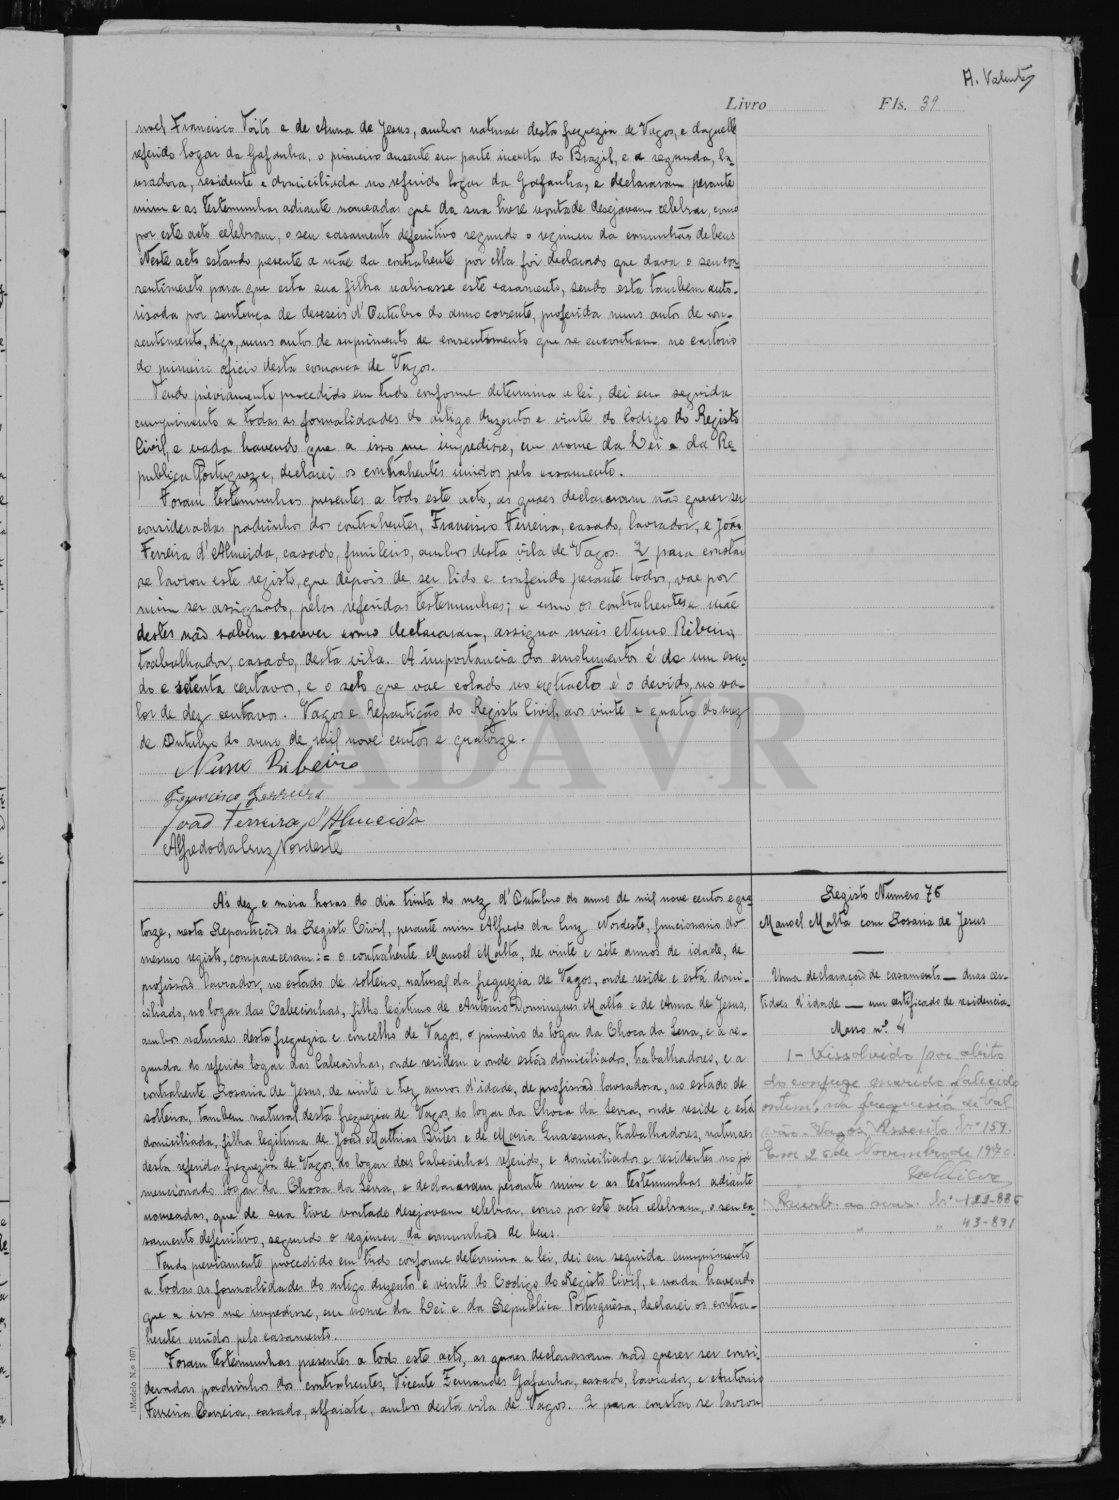 A. Valente
Livro Fls. 39
noel Francisco Toito e de Anna de Jesus, ambos naturaes desta freguezia de Vagos, e daquelle
referido logar da Gafanha, o primeiro ausente em parte incerta do Brazil, e a segunda, la-
vradora, residente e domiciliada no referido logar da Gafanha, e declararam perante
mim e as testemunhas adiante nomeadas que da sua livre vontade desejavam celebrar, como
por este acto celebram, o seu casamento definitivo segundo o regimen da comunhão de bens
Neste acto estando presente a mãe da contrahente por ella foi declarado que dava o seu con-
sentimento para que esta sua filha realisasse este casamento, sendo esta tambem auto-
risada por sentença de deseseis d'Outubro do anno corrente, proferida nuns autos de con-
sentimento, digo, nuns autos de suprimento de consentimento que se encontram no cartorio
do primeiro oficio desta comarca de Vagos.
Tendo préviamente procedido em tudo conforme determina a lei, dei em seguida
cumprimento a todas as formalidades do artigo duzentos e vinte do Codigo do Registo
Civil, e nada havendo que a isso me impedisse, em nome da Lei e da Re-
publica Portugueza, declarei os contrahentes unidos pelo casamento.
Foram testemunhas presentes a todo este acto, as quaes declararam não querer ser
consideradas padrinhos dos contrahentes, Francisco Ferreira, casado, lavrador, e João
Ferreira d'Almeida, casado, funileiro, ambos desta vila de Vagos. E para constar
se lavrou este registo, que depois de ser lido e conferido perante todos, vae por
mim ser assignado, pelas referidas testemunhas; e como os contrahentes e mãe
destes não sabem escrever como declararam, assigna mais Nuno Ribeiro,
trabalhador, casado, desta vila. A importancia dos emolumentos é de um escu-
do e setenta centavos, e o selo que vae colado no extracto é o devido, no va-
lor de dez centavos. Vagos e Repartição do Registo Civil, aos vinte e quatro do mez
de Outubro do anno de mil nove centos e quatorze.
Nuno Ribeiro
Francisco Ferreira
João Ferreira d'Almeida
Alfredo da Luz Nordeste
ADAVR
Registo Numero 76
Manoel Malta com Rosaria de Jesus
Uma declaração de casamento — duas cer-
tidões d'idade — um certificado de residencia.
Masso nº 4
1 - Dissolvido por obito
do conjuge marido falecido
ontem, na freguesia de
Vagos, Assento Nº 159.
Em 26 de Novembro de 197
Nº 122-886
" " 43-891
Ás dez e meia horas do dia trinta do mez d'Outubro do anno de mil nove centos e qua-
torze, nesta Repartição do Registo Civil, perante mim Alfredo da Luz Nordeste, funcionario do
mesmo registo, compareceram: = o contrahente Manoel Malta, de vinte e sete annos de idade, de
profissão lavrador, no estado de solteiro, natural da freguezia de Vagos, onde reside e está domi-
ciliado, no logar das Cabecinhas, filho legitimo de Antonio Domingues Malta e de Anna de Jesus,
ambos naturaes desta freguezia e concelho de Vagos, o primeiro do logar da Choca da Serra, e a se-
gunda do referido logar das Cabecinhas, onde residem e onde estão domiciliados, trabalhadores, e a
contrahente Rosaria de Jesus, de vinte e trez annos d'idade, de profissão lavradora, no estado de
solteira, tambem natural desta freguezia de Vagos do logar da Choca da Serra, onde reside e está
domiciliada, filha legitima de João Mathias Brites e de Maria Guaresma, trabalhadores, naturaes
desta referida freguezia de Vagos do logar das Cabecinhas referido, e domiciliados e residentes no já
mencionado logar da Choca da Serra, e declararam perante mim e as testemunhas adiante
nomeadas, que de sua livre vontade desejavam celebrar, como por este acto celebram, o seu ca-
samento definitivo, segundo o regimen da comunhão de bens.
Tendo previamente procedido em tudo conforme determina a lei, dei em seguida cumprimento
a todas as formalidades do artigo duzentos e vinte do Codigo do Registo Civil, e nada havendo
que a isso me impedisse, em nome da Lei e da Republica Portuguêsa, declarei os contra-
hentes unidos pelo casamento.
Foram testemunhas presentes a todo este acto, as quaes declararam não querer ser consi-
deradas padrinhos dos contrahentes, Vicente Fernandes Gafanha, casado, lavrador, e Antonio
Ferreira Correia, casado, alfaiate, ambos desta vila de Vagos. E para constar se lavrou
(Modelo N.º 107)